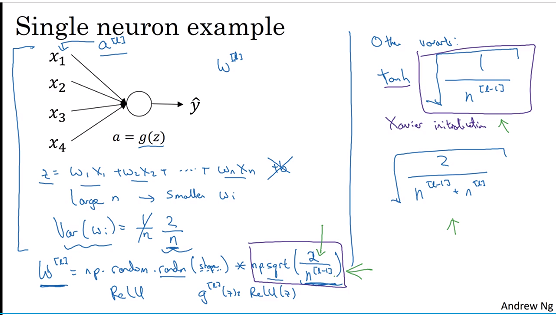 Single neuron example
x₁
a^[l]
x₂
x₃
x₄
ŷ
a = g(z)
w^[l]
z = w₁x₁ + w₂x₂ + ... + wₙxₙ + b
Large n → Smaller wᵢ
Var(wᵢ) = 1/n 2/n
W^[l] = np.random.randn(shape) * np.sqrt(2/n^[l-1])
ReLU g^[l](z) = ReLU(z)
Other variants:
tanh √(1/n^[l-1])
Xavier initialization
√(2/(n^[l-1] + n^[l]))
Andrew Ng